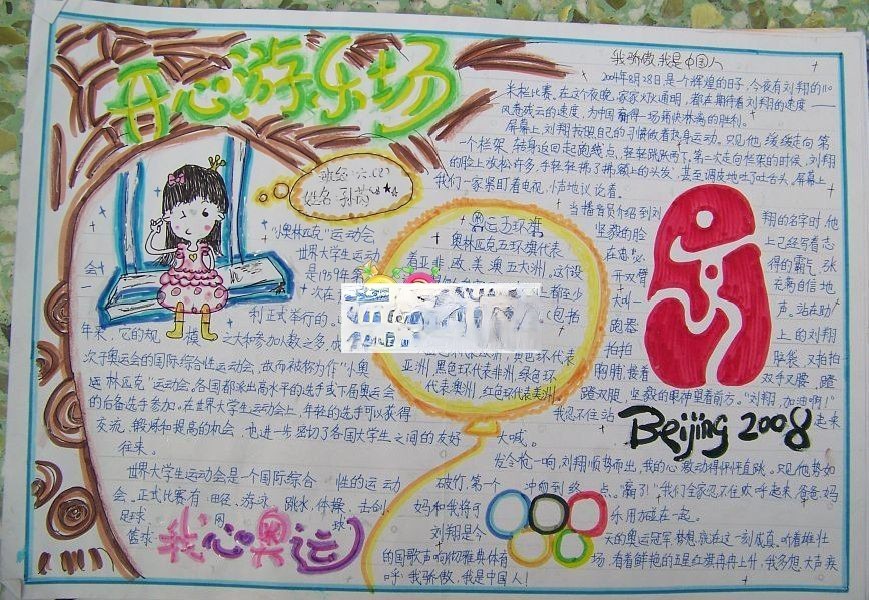 开心游乐场
班级:六.(2)
姓名:孙
"小奥林匹克"运动会,
世界大学生运动会
是1959年第
会一
次在
利正式举行的。
年来,它的规模之大和参加人数之多成
次于奥运会的国际综合性运动会,故而被称为作"小奥
林匹克"运动会,各国都派出高水平的选手或下届奥运会
的后备选手参加。在世界大学生运动会上,年轻的选手可以获得
交流,锻炼和提高的机会,也进一步密切了各国大学生之间的友好
往来。
世界大学生运动会是一个国际综合性的运动
会。正式比赛有:田径、游泳、跳水、体操、击剑、
足球、网球
篮球
我心奥运
奥林匹克五环旗代表
着亚、非、欧、美、澳五大洲,这
上都至少
包括
环代表
亚洲,黑色环代表非洲,绿色环
代表澳洲,红色环代表美洲。
我骄傲,我是中国人
2004年8月28日是个辉煌的日子,今夜有刘翔的110
米栏比赛。在这个夜晚,家家灯火通明,都在期待着刘翔的速度——
风卷残云的速度,为中国赢得一场痛快淋漓的胜利。
屏幕上,刘翔按照自己的习惯做着热身运动。只见他,缓缓走向第
一个栏架,转身返回起跑终点,轻轻跳跃着。第二次走向栏架的时候,刘翔
的脸上放松许多,手轻轻拂了拂额上的头发,甚至调皮地吐了吐舌头。屏幕上
我们一家紧盯着电视,悄悄地议论着。
当播音员介绍到刘翔的名字时,他
坚毅的脸上已经写着志
在必得的霸气,张
开双臂充满自信地
大叫一声。站在助
跑器上的刘翔
拍拍肢袋,又拍拍
胸脯,接着双手叉腰,踏
踏双腿,坚毅的眼神望着前方。"刘翔,加油啊!"
我忍不住站起来
大喊。
发令枪一响,刘翔顺势而出,我的心激动得怦怦直跳。只见他势如
破竹,第一个冲刺到终点。"赢了!"我们全家忍不住欢呼起来,爸爸、妈
妈和我将手乐用力握在一起。
刘翔是今天的奥运冠军,梦想就在这一刻成真。听着雄壮
的国歌声响彻雅典体育场,看着鲜艳的五星红旗冉冉上升,我多想大声疾
呼:我骄傲,我是中国人!
Beijing 2008